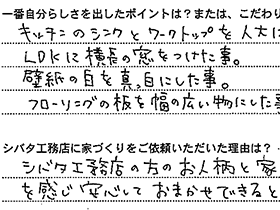 一番自分らしさを出したポイントは？または、こだわり
キッチンのシンクとワークトップを人大に
LDKに横長の窓をつけた事。
壁紙の白を真っ白にした事。
フローリングの板を幅の広い物にした事
シバタ工務店に家づくりをご依頼いただいた理由は？
シバタ工務店の方のお人柄と家
を感じ安心しておまかせできると